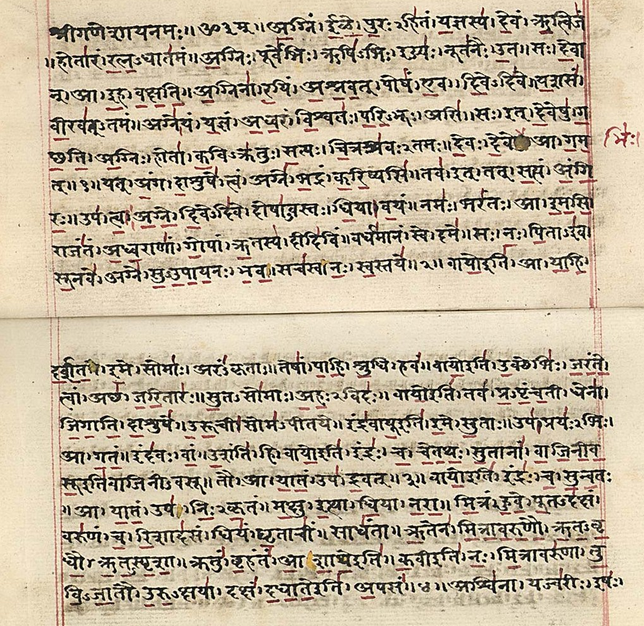 श्रीगणेशायनमः॥ॐ३म्॥ अग्निं। ईळे। पुरःऽहितं। यज्ञस्य। देवं। ऋत्विजं
॥होतारं। रत्नऽधातमं॥ अग्निः। पूर्वेभिः। ऋषिऽभिः। ईड्यः। नूतनैः। उत॥ सः। देवा
न्। आ। इह। वक्षति॥ अग्निना। रयिं। अश्नवत्। पोषं। एव। दिवेऽदिवे॥ यशसं
वीरवत्ऽतमं॥ अग्ने। यं। यज्ञं। अध्वरं। विश्वतः। परिऽभूः। असि॥ सः। इत्। देवेषु। ग
च्छति॥ अग्निः। होता। कविऽक्रतुः। सत्यः। चित्रश्रवःऽतमः॥ देवः। देवे आ। गम
भिः।
त्॥१॥ यत्। अंग। दाशुषे। त्वं। अग्ने। भद्रं। करिष्यसि॥ तव। इत्। तत्। सत्यं। अंगि
रः॥ उप। त्वा। अग्ने। दिवेऽदिवे। दोषाऽवस्तः। धिया। वयं॥ नमः। भरंतः। आ। इमसि
राजंतं। अध्वराणां। गोपां। ऋतस्य। दीदिविं॥ वर्धमानं। स्वे। दमे॥ सः। नः। पिताऽइव
सूनवे। अग्ने। सुऽउपायनः। भव॥ सचस्व। नः। स्वस्तये॥२॥ वायोइति। आ। याहि।
दर्शत। इमे। सोमाः। अरंऽकृताः॥ तेषां। पाहि। श्रुधि। हवं॥ वायोइति। उक्थेभिः। जरंते
त्वां। अच्छ। जरितारः॥ सुतऽसोमाः। अहःऽविदः॥ वायोइति। तव। प्रऽपृंचती। धेना।
जिगाति। दाशुषे॥ उरूची। सोमऽपीतये॥ इंद्रवायूइति। इमे। सुताः॥ उप। प्रयःऽभिः।
आ। गतं॥ इंदवः। वां। उशंति। हि॥ वायोइति। इंद्रः। च। चेतथः। सुतानां। वाजिनीव
सूइतिवाजिनीऽवसू॥ तौ। आ। यातं। उप। द्रवत्॥३॥ वायोइति। इंद्रः। च। सुन्वतः
॥आ। यातं। उप। निःऽकृतं॥ मक्षु। इत्था। धिया। नरा॥ मित्रं। हुवे। पूतऽदक्षं।
वरुणं। च। रिशादसं॥ धियं। घृताचीं। साधंता॥ ऋतेन। मित्रावरुणौ। ऋतऽवृ
धौ। ऋतऽस्पृशा॥ क्रतुं। बृहंतं। आशाथेइति॥ कवीइति। नः। मित्रावरुणा। तु
विऽजातौ। उरुऽक्षया॥ दक्षं। दधातेइति। अपसं॥४॥ अश्विना। यज्वरीः। इषः।